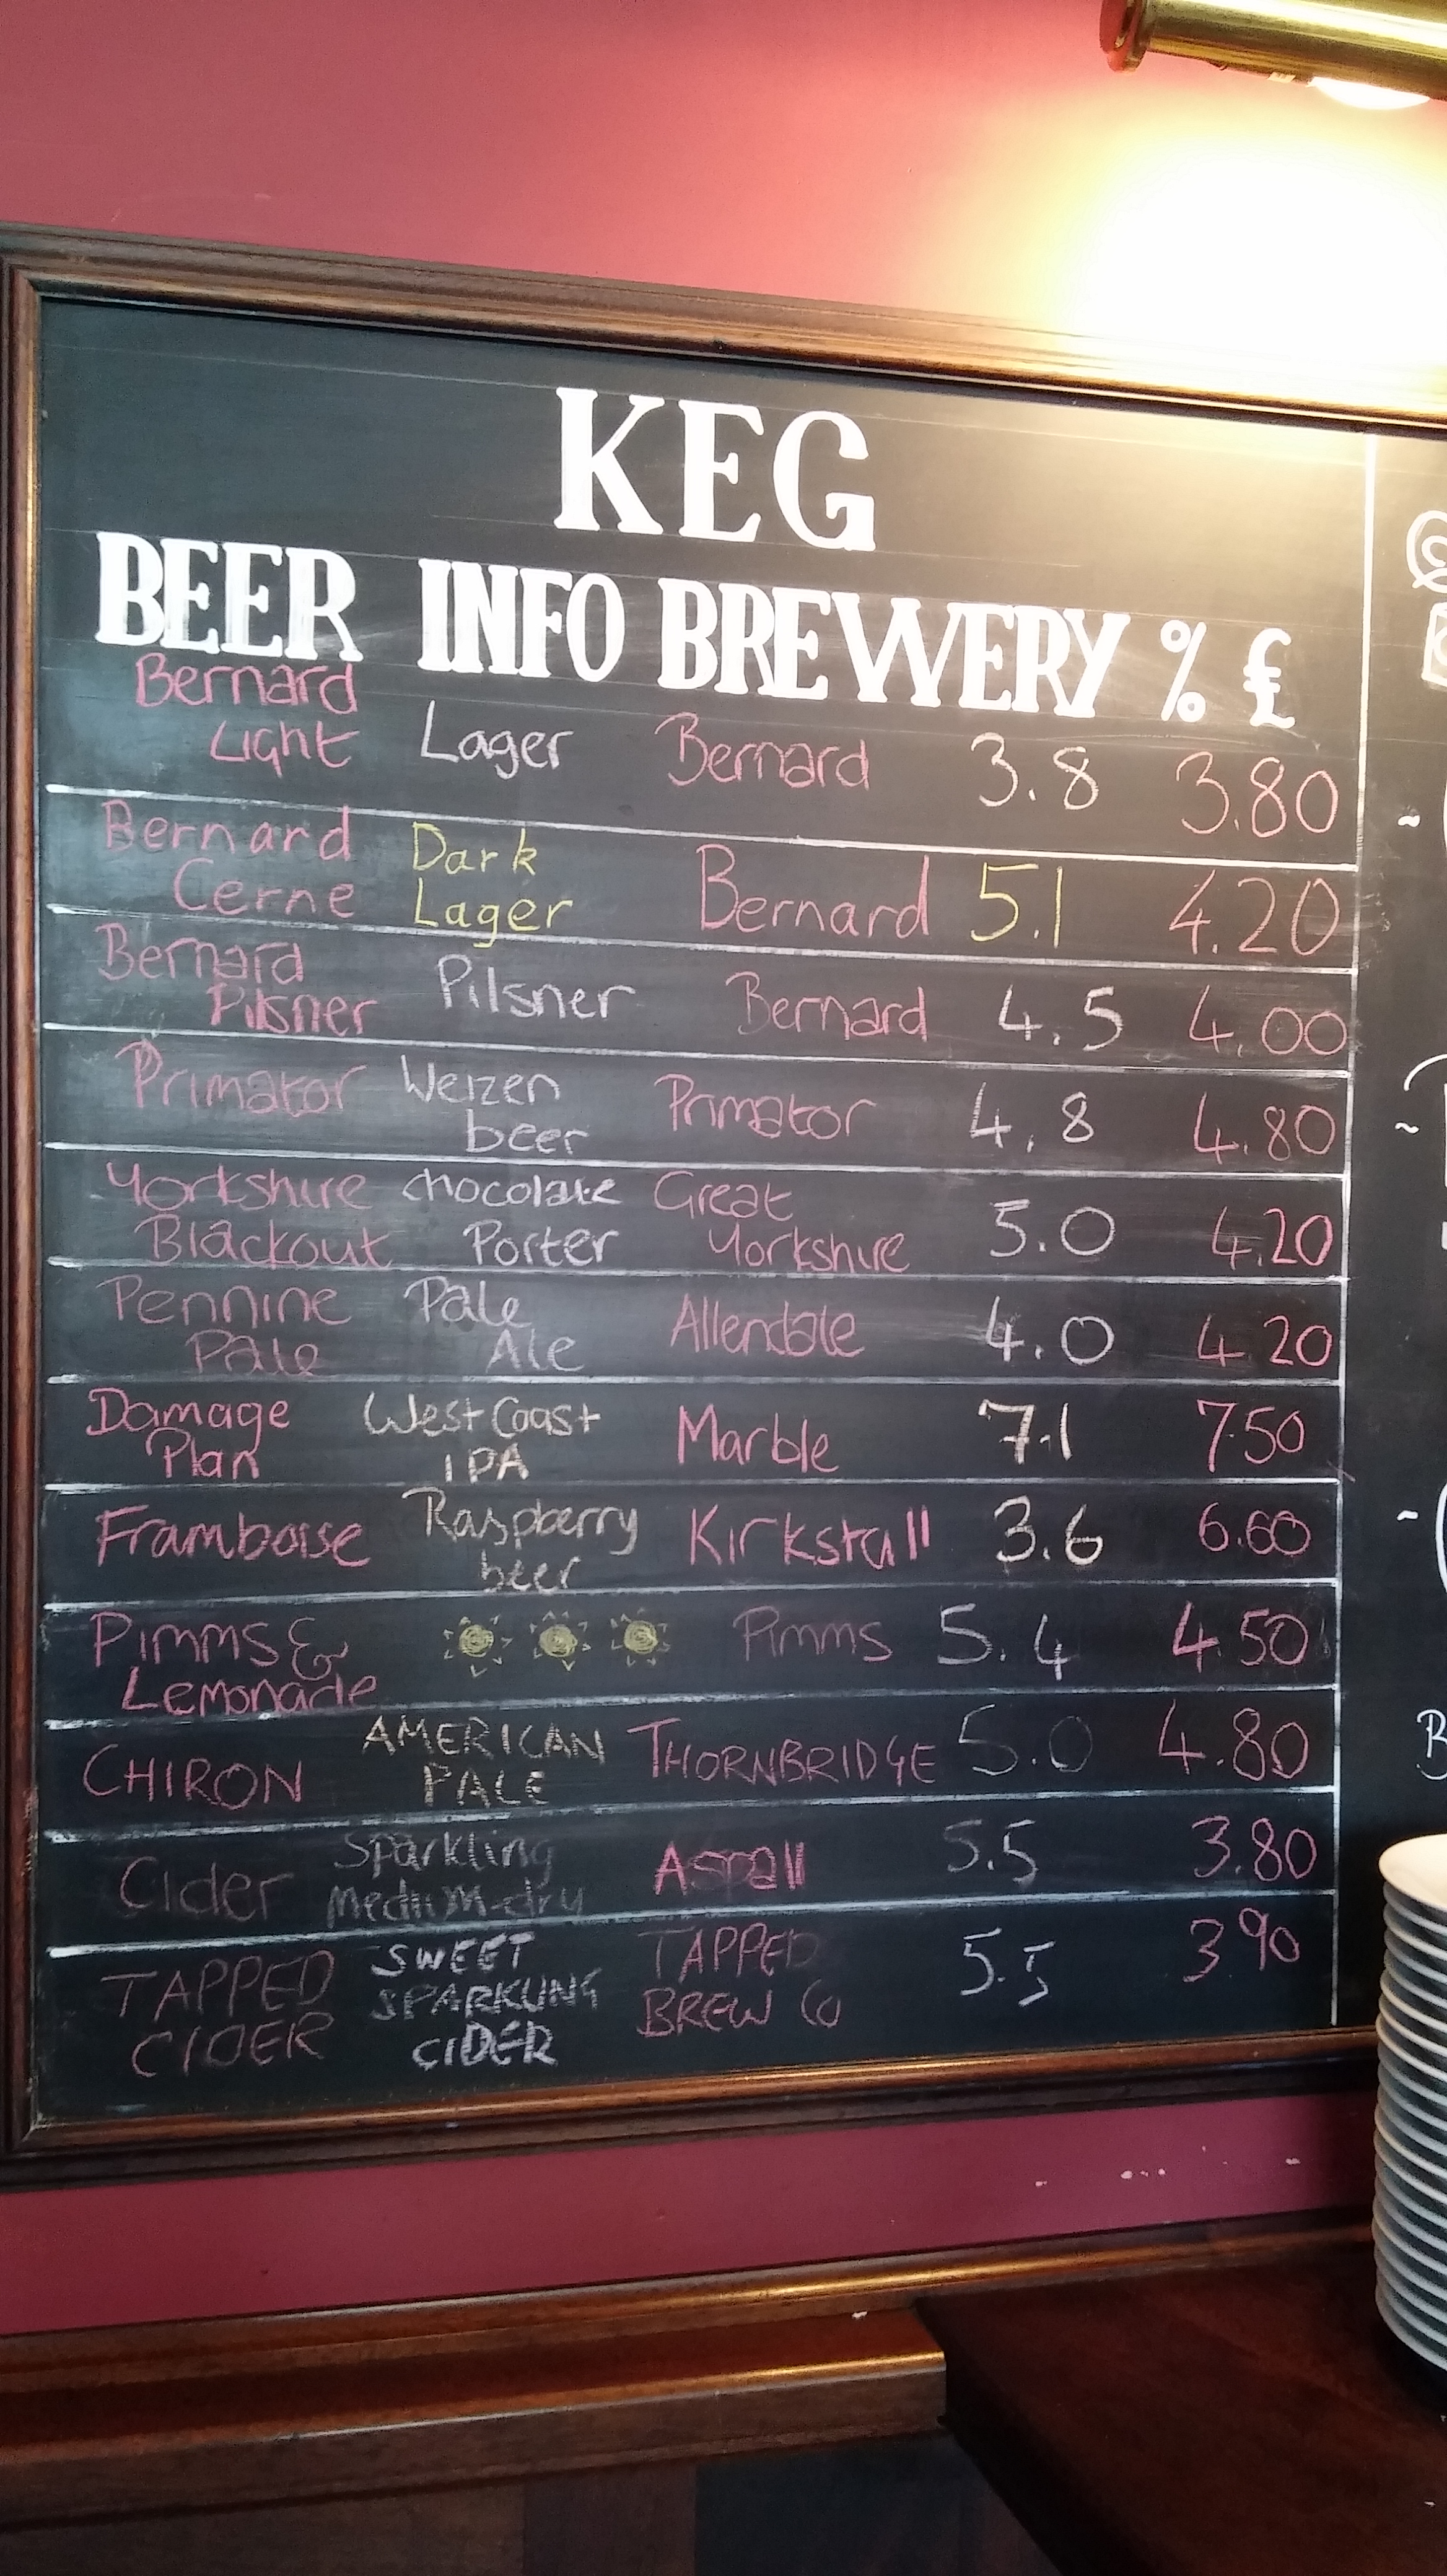 KEG
BEER INFO BREWERY % £
Bernard Light Lager Bernard 3.8 3.80
Bernard Cerne Dark Lager Bernard 5.1 4.20
Bernard Pilsner Pilsner Bernard 4.5 4.00
Primator Weizen beer Primator 4.8 4.80
Yorkshire Blackout chocolate Porter Great Yorkshire 5.0 4.20
Pennine Pale Pale Ale Allendale 4.0 4.20
Damage Plan West Coast IPA Marble 7.1 7.50
Framboise Raspberry beer Kirkstall 3.6 6.60
Pimms & Lemonade Pimms 5.4 4.50
CHIRON AMERICAN PALE THORNBRIDGE 5.0 4.80
Cider Sparkling Medium-dry Aspall 5.5 3.80
TAPPED CIDER SWEET SPARKLING CIDER TAPPED BREW Co 5.5 3.90